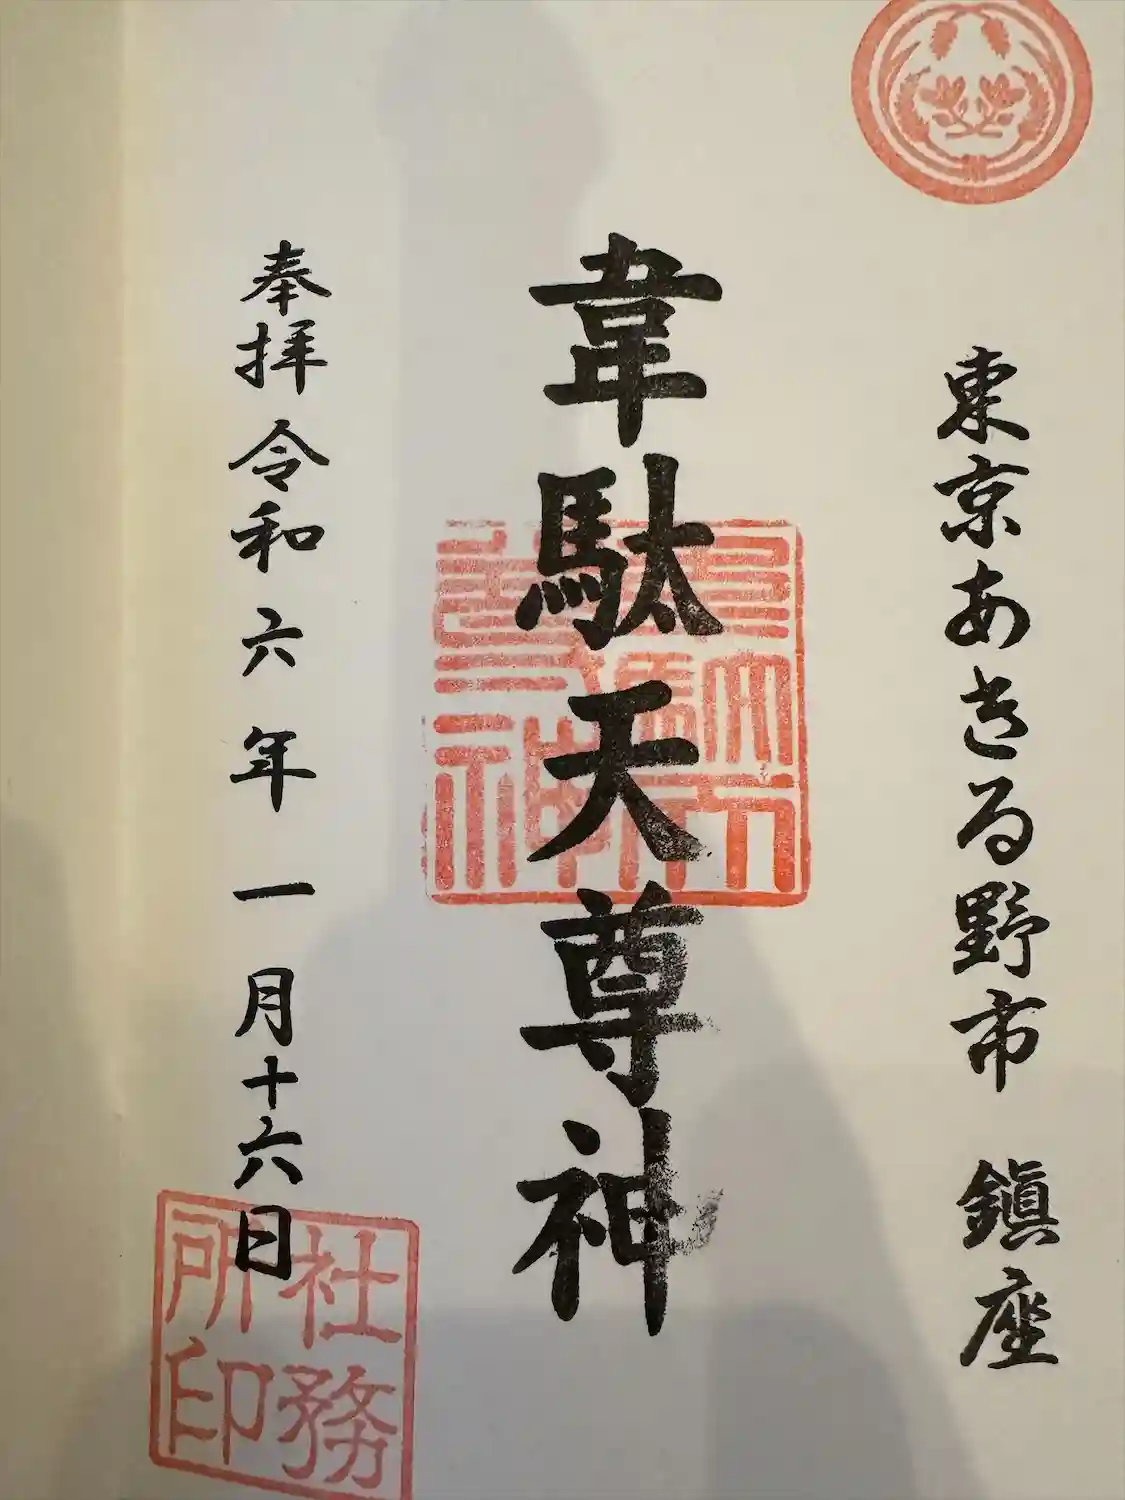 東京あきる野市 鎭座
韋駄天尊神
奉拝 令和六年一月十六日
社務
所印